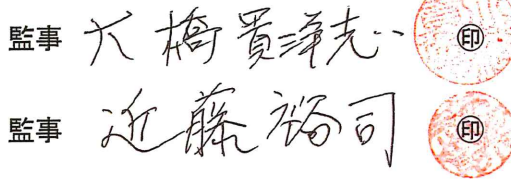 監事 大橋貴洋志 ㊞
監事 近藤裕司 ㊞